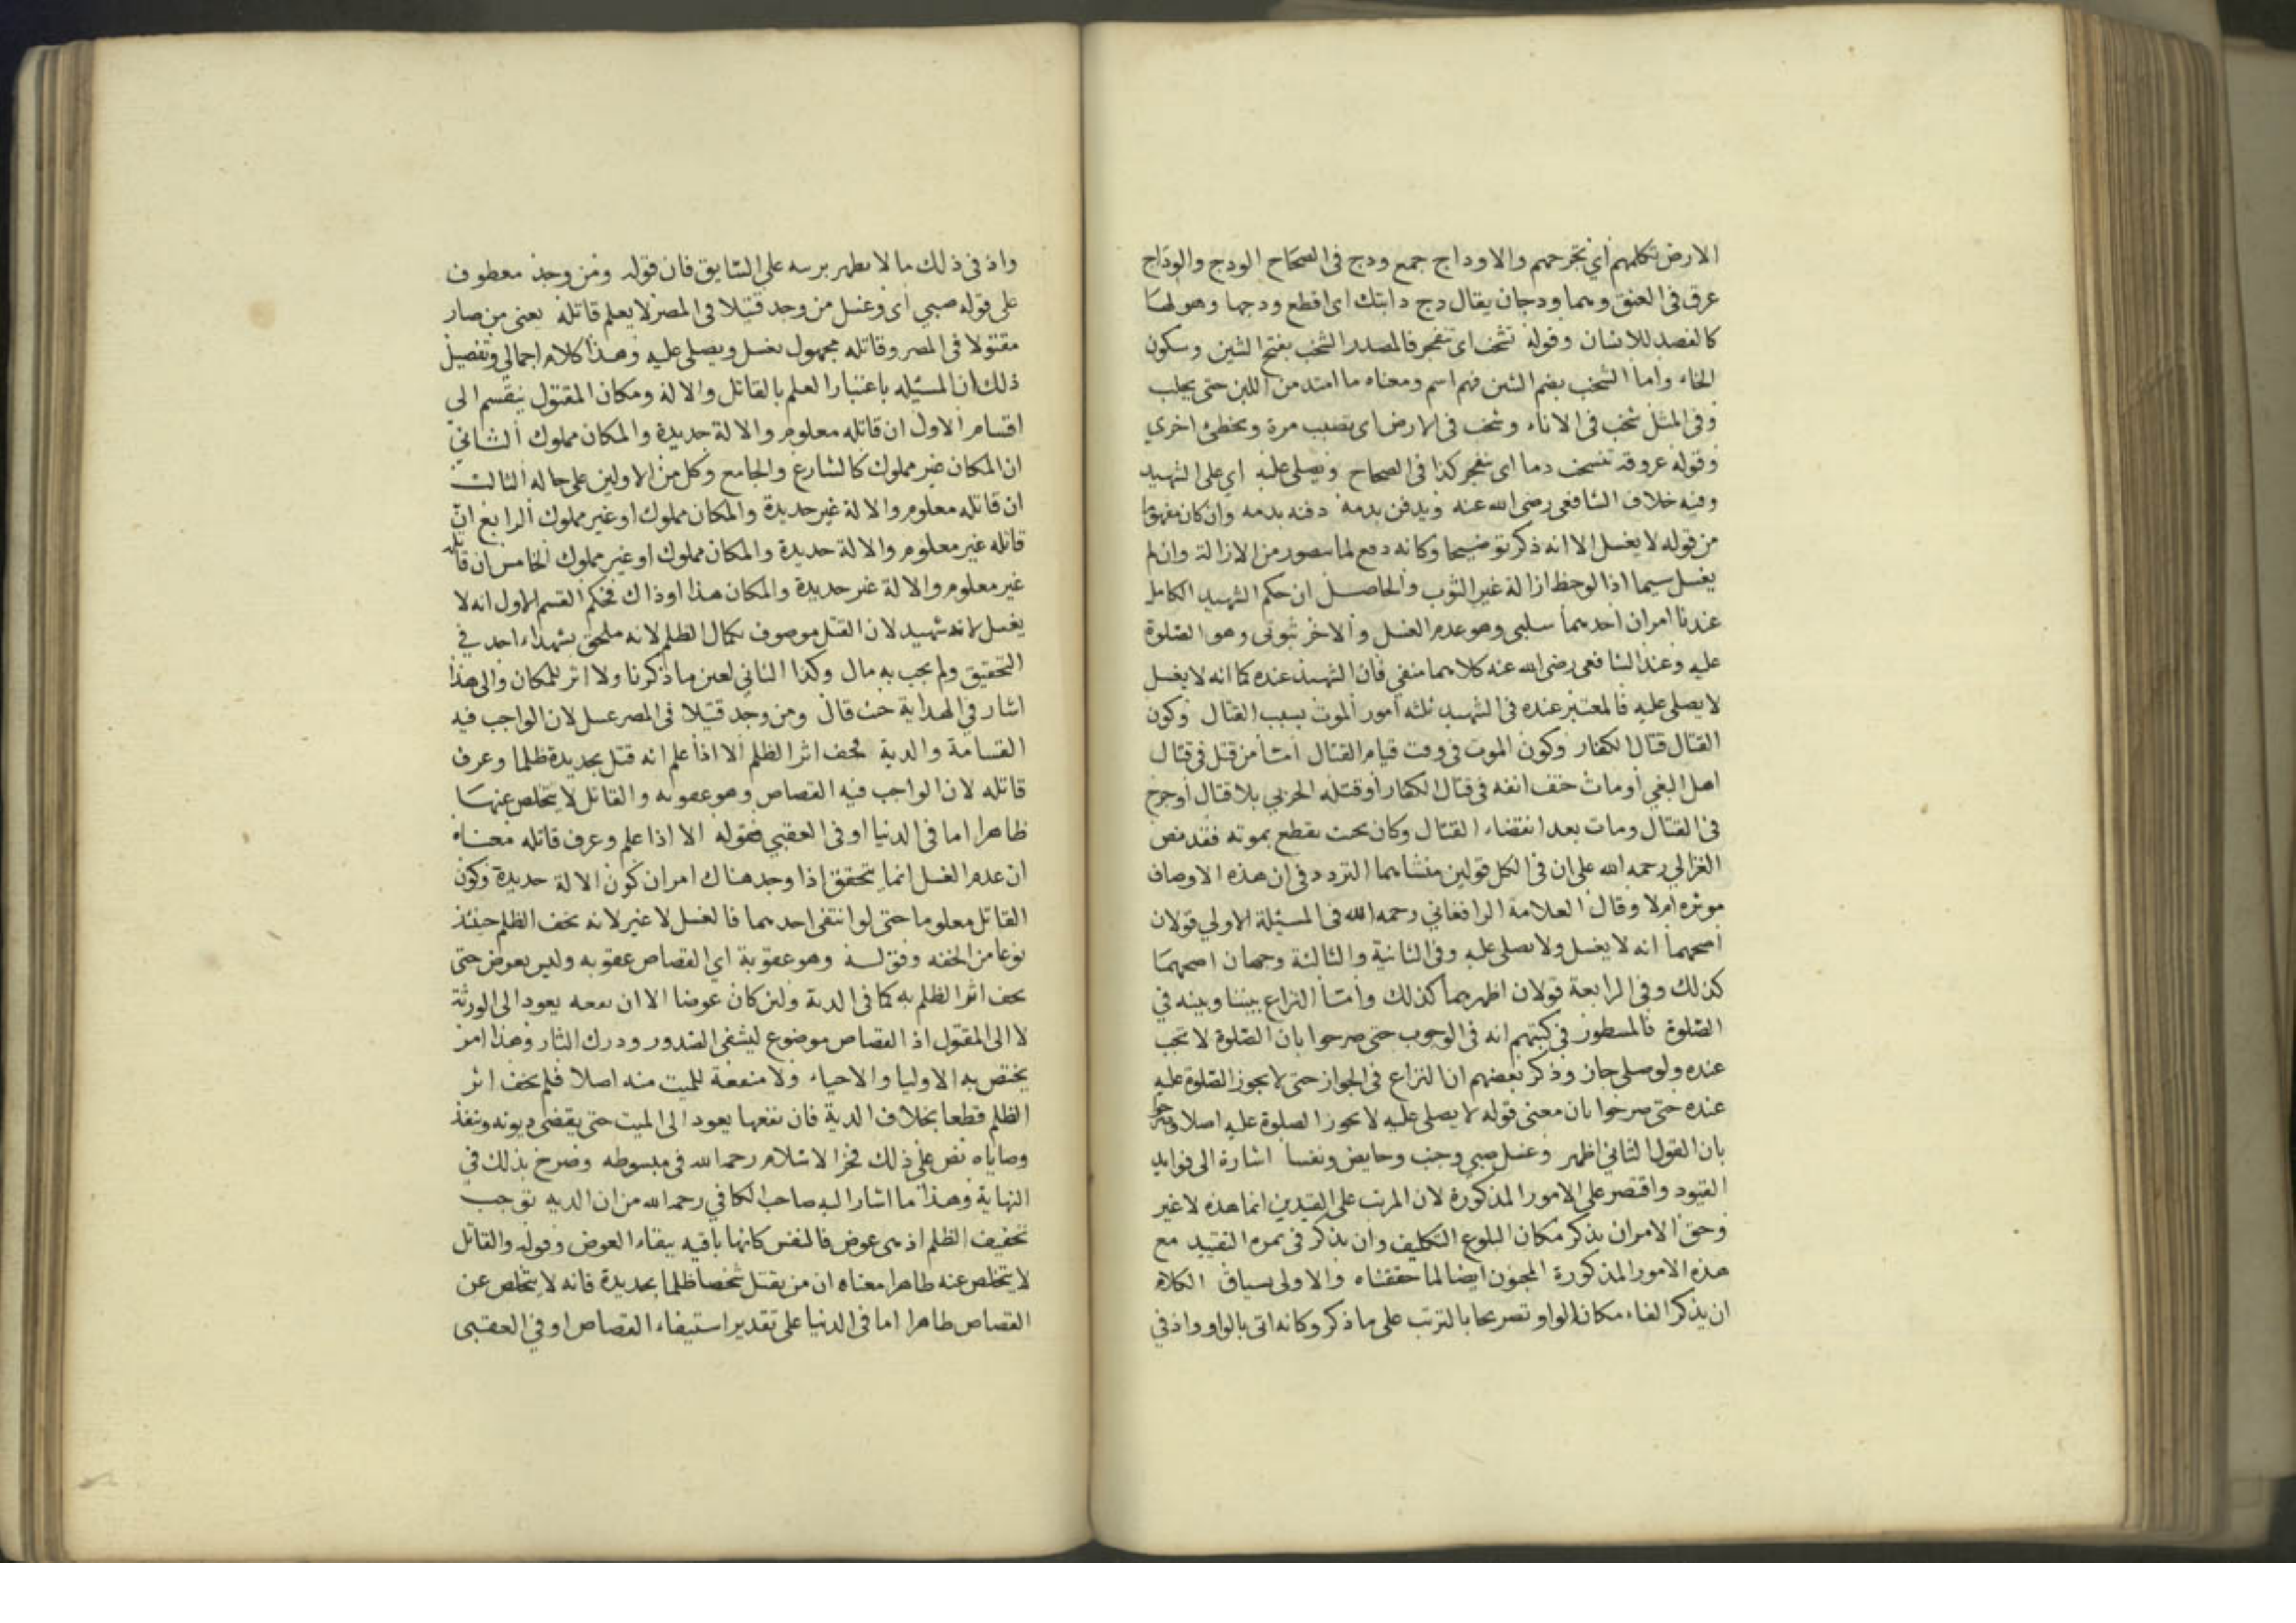 الارض تكلمهم اي تجرحهم والاوداج جمع ودج في الصحاح الودج والوداج
عرق في العنق وهما ودجان يقال دج دابتك اى اقطع ودجها وهو لها
كالفصد للانسان وقوله تشخب اى تنفجر فالمصدر الشخب بفتح الشين وسكون
الخاء واما الشخب بضم الشين فهم اسم ومعناه ما امتد من اللبن حتى يحلب
وفى المثل شخب فى الاناء وشخب فى الارض اى تصيب مرة وتخطئ اخرى
وقوله عروقه تنشخب دما اى تنفجر كذا فى الصحاح ويصلى عليه اي على الشهيد
وفيه خلاف الشافعى رضى الله عنه ويدفن بدمه دفنه بدمه وان كان مفهوما
من قوله لا يغسل الا انه ذكر توضيحا وكانه دفع لما يتصور من الازالة وان لم
يغسل سيما اذا لوحظ ازالة غير الثوب والحاصل ان حكم الشهيد الكامل
عندنا امران احدهما سلبى وهو عدم الغسل والاخر ثبوتى وهو الصلوة
عليه وعند الشافعى رضى الله عنه كلاهما منفي فان الشهيد عنده كما انه لا يغسل
لا يصلى عليه فالمعتبر عنده فى الشهيد ثلثه امور الموت بسبب القتال وكون
القتال قتال الكفار وكون الموت فى وقت قيام القتال امتا من قتل فى قتال
اهل البغي أو مات حتف انفه فى قتال الكفار أو قتله الحربي بلا قتال أو جرح
فى القتال ومات بعد انقضاء القتال وكان بحث يقطع بموته فقد نص
الغزالي رحمه الله على ان فى الكل قولين منشاهما التردد فى ان هذه الاوصاف
موثره ام لا وقال العلامة الرافغاني رحمه الله فى المسئلة الاولى قولان
أصحهما انه لا يغسل ولا يصلى عليه وفى الثانية والثالثة وجهان اصحهما
كذلك وفى الرابعة قولان اظهرهما كذلك وامتا النزاع بيننا وبينه في
الصلوة فالمسطور في كتبهم انه فى الوجوب حتى صرحوا بان الصلوة لا تجب
عنده ولو صلى جاز وذكر بعضهم ان النزاع فى الجواز حتى لا يجوز الصلوة عليه
عنده حتى صرحوا بان معنى قوله لا يصلى عليه لا يجوز الصلوة عليه اصلا وصرحوا
بان القول الثاني اظهر وغسل صبي وجنب وحايض ونفسا اشارة الى فوايد
القيود واقتصر على الامور المذكورة لان المرتب على القيدين انما هذه لا غير
وحق الامر ان يذكر مكان البلوغ التكليف وان يذكر فى ثمره التقييد مع
هذه الامور المذكورة المجنون ايضا لما حققناه والاولى بسياق الكلام
ان يذكر الفاء مكان الواو تصريحا بالترتب على ما ذكر وكانه اتى بالواو واذ في
واذ فى ذلك ما لا يظهر على السابق فان قوله ومن وجد معطوف
على قوله صبي اى وغسل من وجد قتيلا فى المصر لا يعلم قاتله يعنى من صار
مقتولا فى المصر وقاتله مجهول يغسل ويصلى عليه وهذا كلام اجمالي وتفصيل
ذلك ان المسئيله باعتبار العلم بالقاتل والالة ومكان المقتول ينقسم الى
اقسام الاول ان قاتله معلوم والالة حديدة والمكان مملوك الثانى
ان المكان غير مملوك كالشارع والجامع وكل من الاولين على حاله الثالث
ان قاتله معلوم والالة غير حديدة والمكان مملوك او غير مملوك الرابع ان
قاتله غير معلوم والالة حديدة والمكان مملوك او غير مملوك الخامس ان قاتله
غير معلوم والالة غير حديدة والمكان هذا او ذاك فحكم القسم الاول انه لا
يغسل لانه شهيد لان القتل موصوف بكمال الظلم لانه ملحق بشهداء احد في
التحقيق ولم يجب به مال وكذا الثانى لعين ما ذكرنا ولا اثر للمكان والى هذا
اشار في الهداية حث قال ومن وجد قتيلا فى المصر غسل لان الواجب فيه
القسامة والدية فخف اثر الظلم الا اذا علم انه قتل بحديدة ظلما وعرف
قاتله لان الواجب فيه القصاص وهو عقوبه والقاتل لا يتخلص عنها
ظاهرا اما فى الدنيا او فى العقبي فقوله الا اذا علم وعرف قاتله معناه
ان عدم الغسل انما يتحقق اذا وجد هناك امران كون الالة حديدة وكون
القاتل معلوما حتى لو انتفى احدهما فالغسل لا غير لانه يخف الظلم حينئذ
نوعا من الخفه وقوله وهو عقوبة اي القصاص عقوبه وليس بعوض حتى
يخف اثر الظلم به كما فى الدية ولئن كان عوضا الا ان نفعه يعود الى الورثة
لا الى المقتول اذ القصاص موضوع ليشفى الصدور ودرك الثار وهذا امر
يختص به الاوليا والاحياء ولا منفعة للميت منه اصلا فلم يخف اثر
الظلم قطعا بخلاف الدية فان نفعها يعود الى الميت حتى يقضى ديونه وتنفذ
وصاياه نص على ذلك فخر الاسلام رحمه الله فى مبسوطه وصرح بذلك في
النهاية وهذا ما اشار اليه صاحب الكافي رحمه الله من ان الديه توجب
تخفيف الظلم اذ هى عوض فالنفس كانها باقيه ببقاء العوض وقوله والقاتل
لا يتخلص عنه ظاهرا معناه ان من يقتل شخصا ظلما بحديدة فانه لا يتخلص عن
القصاص ظاهرا اما فى الدنيا على تقدير استيفاء القصاص او فى العقبى